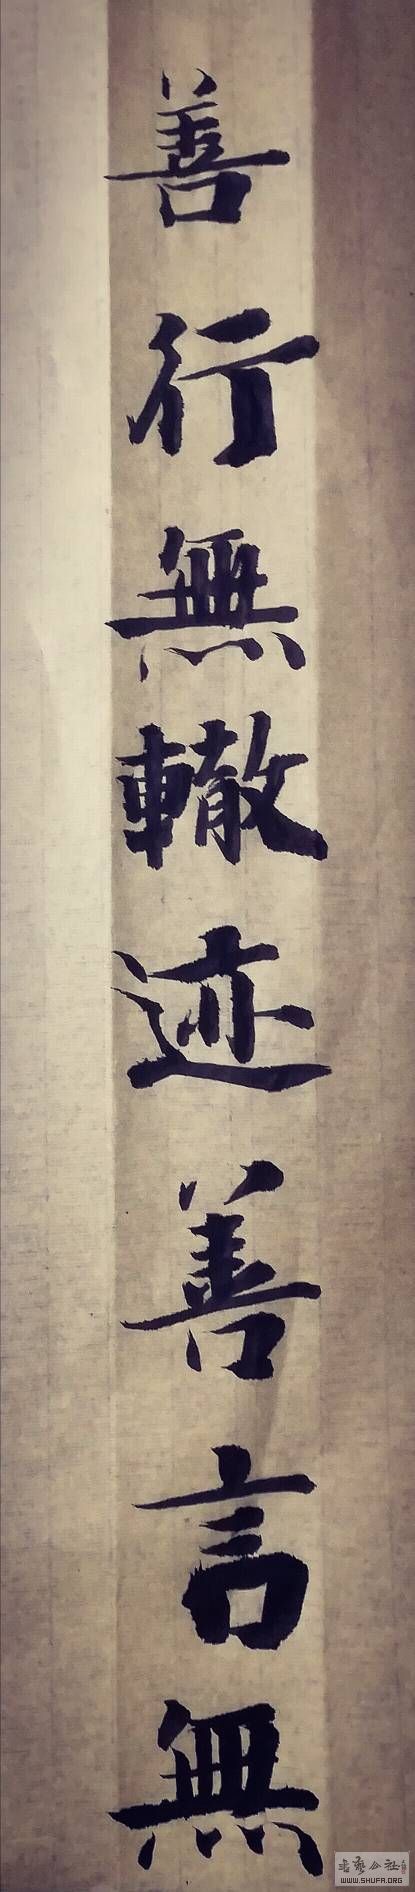 善行無轍迹善言無
书艺公社
WWW.SHUFA.ORG